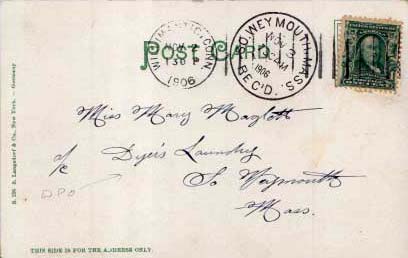 POST CARD.
WILLIMANTIC, CONN.
NOV
130 P
1906
SO. WEYMOUTH, MASS.
NOV
AM
1906
REC'D.
Miss Mary Maglott
c/o Dyer's Laundry
So Weymouth
Mass.
DPO
S. 236 S. Langsdorf & Co., New York. - Germany
THIS SIDE IS FOR THE ADDRESS ONLY.